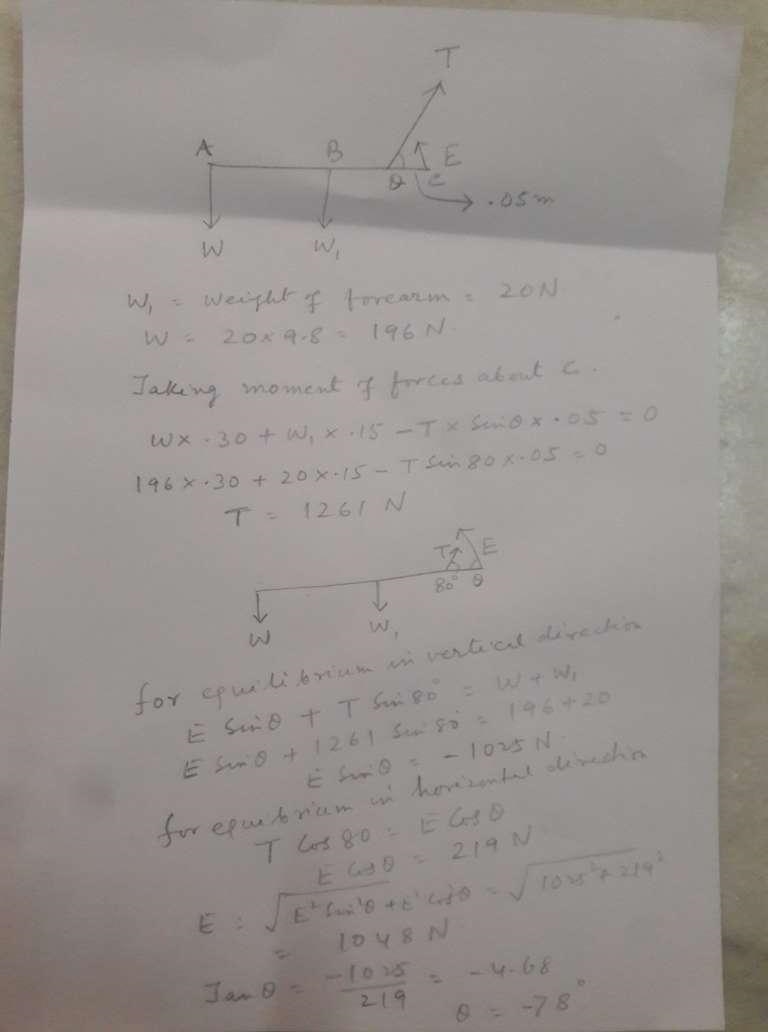 T
A B E
θ C → .05m
W W₁
W₁ = Weight of forearm = 20N
W = 20×9.8 = 196 N.
Taking moment of forces about C.
W× .30 + W₁ × .15 - T × Sinθ × .05 = 0
196 × .30 + 20×.15 - T Sin 80 ×.05 = 0
T = 1261 N
T E
80° θ
W W₁
for equilibrium in vertical direction
E Sinθ + T Sin 80° = W + W₁
E Sinθ + 1261 Sin 80° = 196+20
E Sinθ = - 1025 N.
for equilibrium in horizontal direction
T Cos 80 = E Cos θ
E Cos θ = 219 N
E = √E² Sin²θ + E² Cos²θ = √1025² + 219²
= 1048 N
Tan θ = -1025/219 = -4.68
θ = -78°